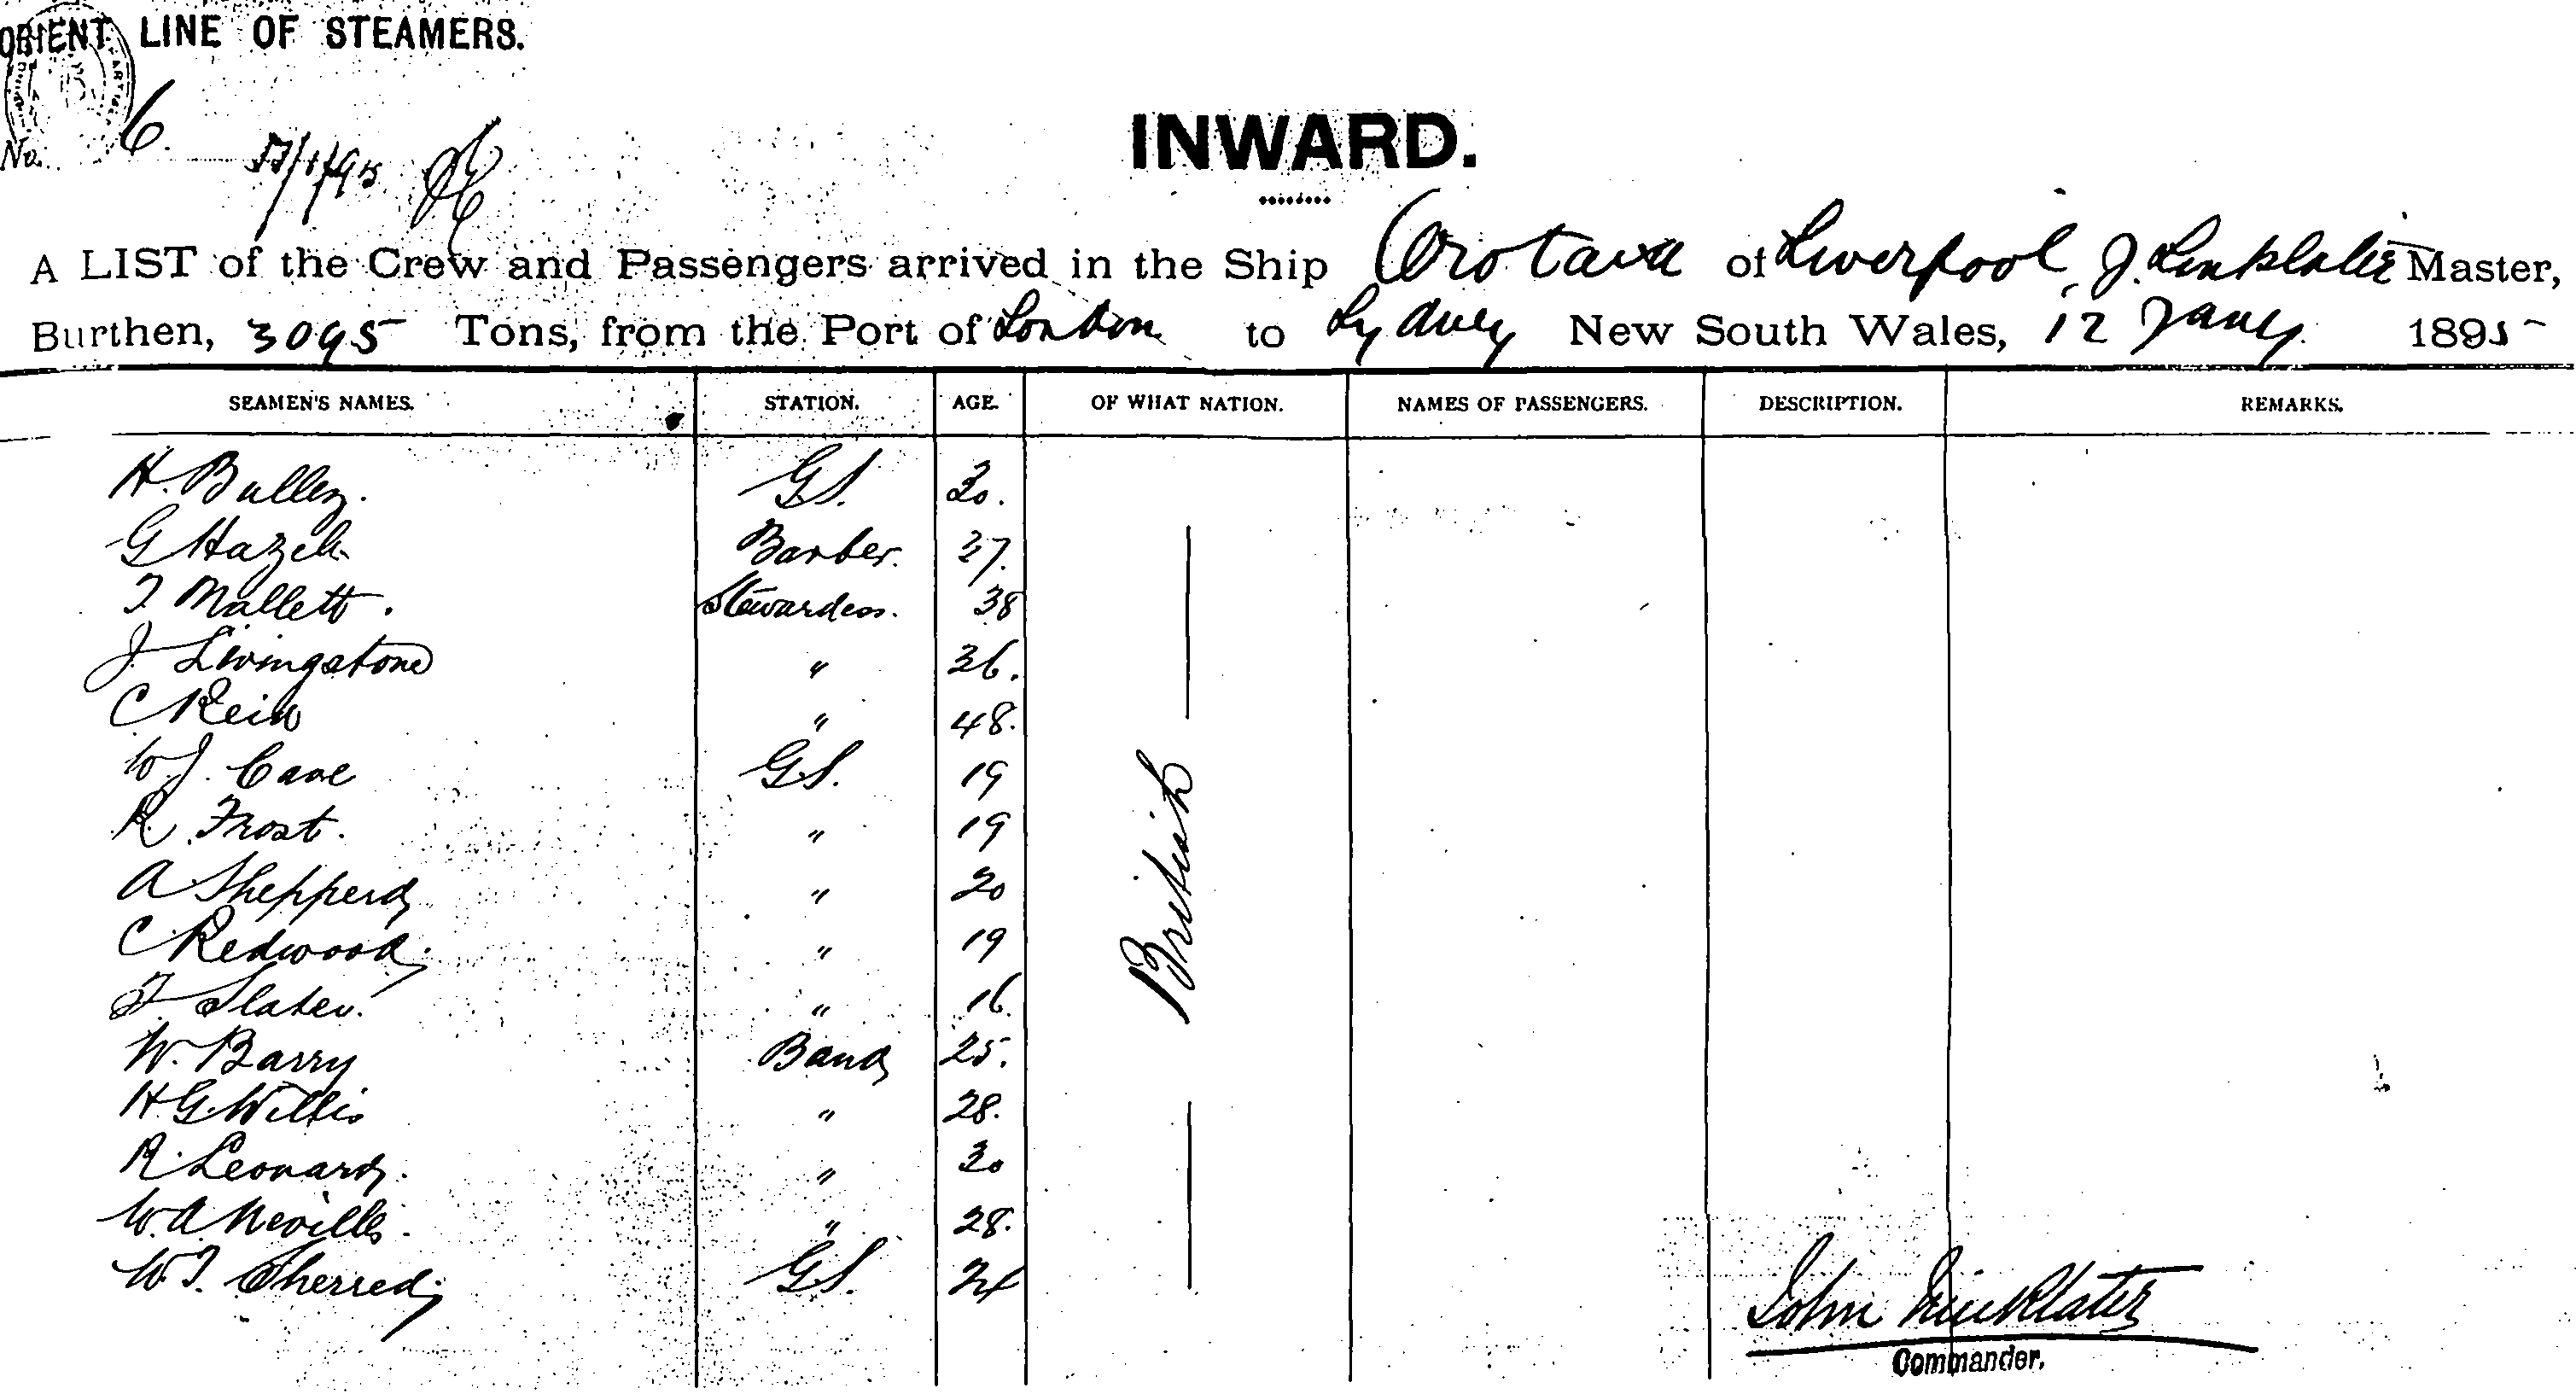 ORIENT LINE OF STEAMERS.
No. 6.
INWARD.
A LIST of the Crew and Passengers arrived in the Ship Orotava of Liverpool, J. Linklater Master,
Burthen, 3095 Tons, from the Port of London to Sydney New South Wales, 12 Jany. 1895
SEAMEN'S NAMES. STATION. AGE. OF WHAT NATION. NAMES OF PASSENGERS. DESCRIPTION. REMARKS.
H. Bullen. G.S. 30.
G Hazell Barber. 37.
T. Mallett. Stewardess. 38
J. Livingstone " 36.
C Reid " 48.
W.J. Cave G.S. 19
R. Frost. " 19
A Shepperd " 20
C Redwood. " 19
F Slater. " 16.
W. Barry Band 25.
H.G. Willis " 28.
R. Leonard. " 30
W.A Neville. " 28.
W.T. Sherred G.S. 24
British
John Linklater
Commander.